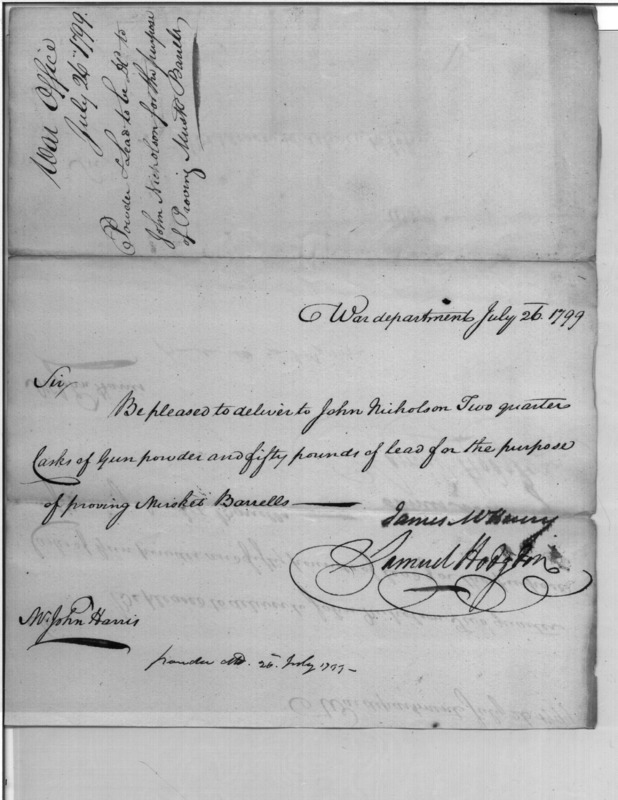 War Office
July 26th 1799.
Powder & Lead to be dd to
John Nicholson for the purpose
of Proving Muskt Barrels
War department July 26th 1799
Sir
Be pleased to deliver to John Nicholson Two quarter
Casks of Gun powder and fifty pounds of lead for the purpose
of proving Musket Barrells
James McHenry
Samuel Hodgdon
Mr. John Harris
powder dd. 26th July 1799